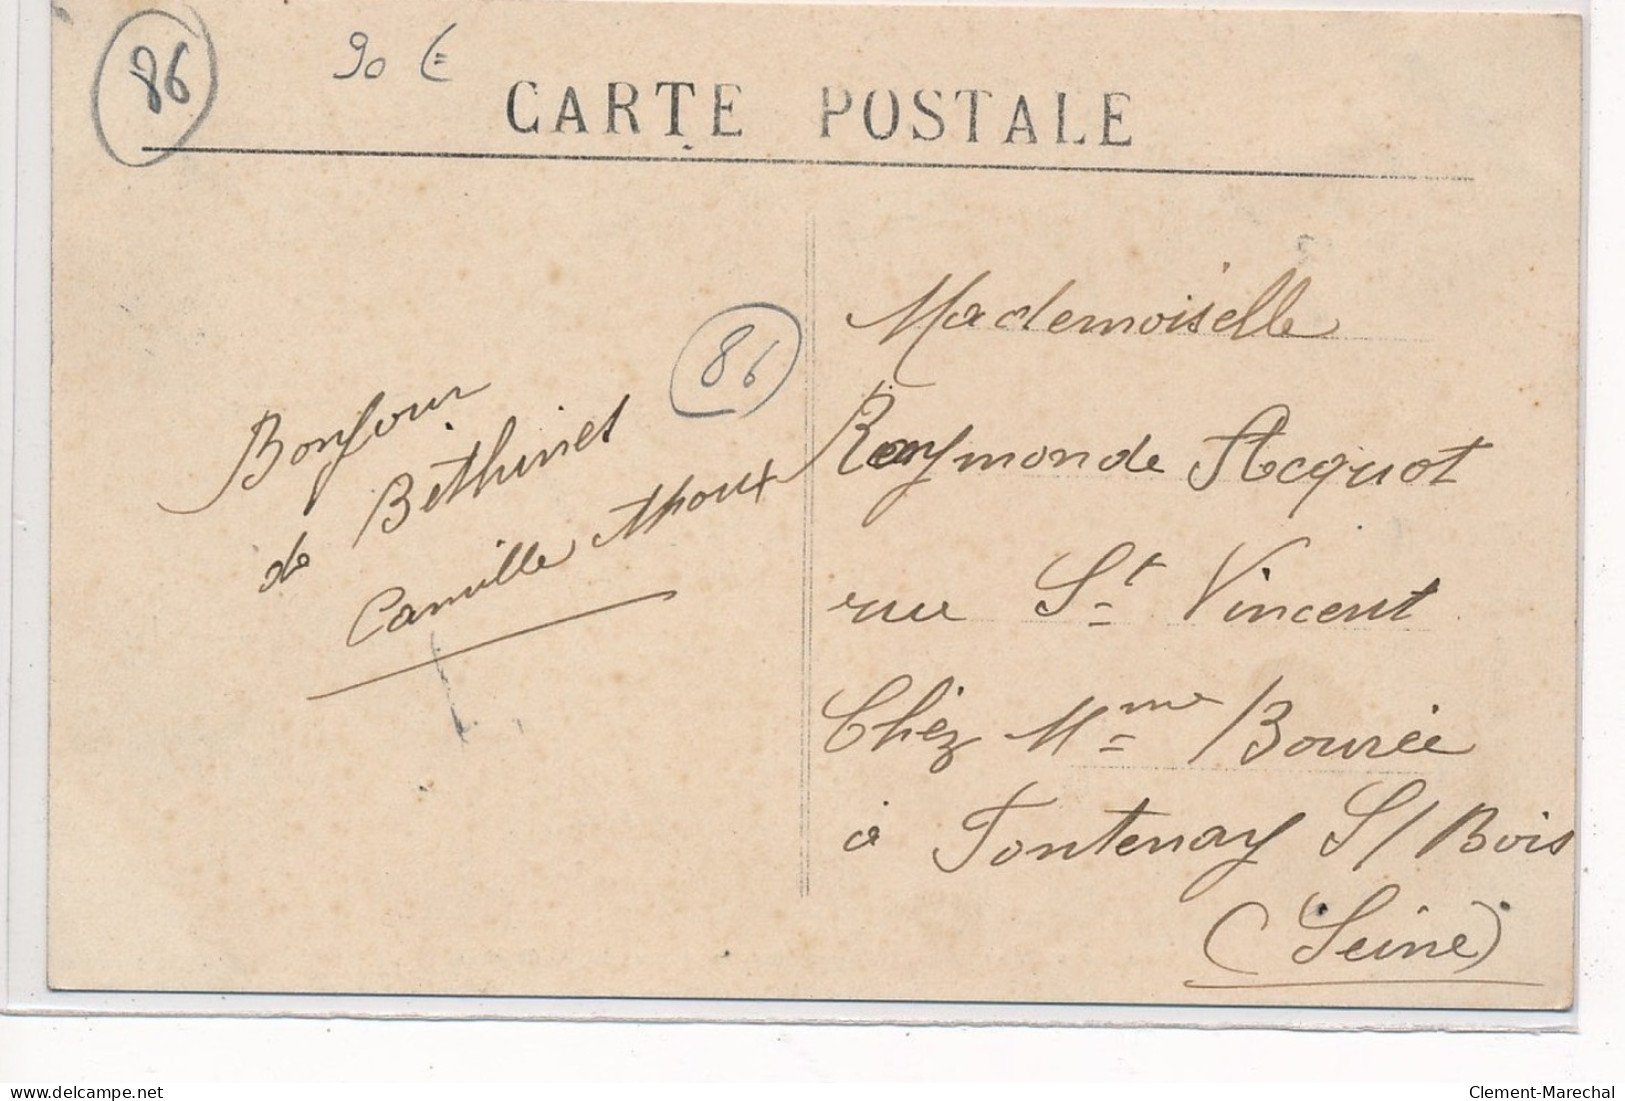 86
90 €
CARTE POSTALE
86
Bonjour
de Béthines
Camille
Mademoiselle
Raymonde Acquot
rue St Vincent
Chez Mme Bourée
à Fontenay S/ Bois
(Seine)
delcampe.net
Clement-Marechal